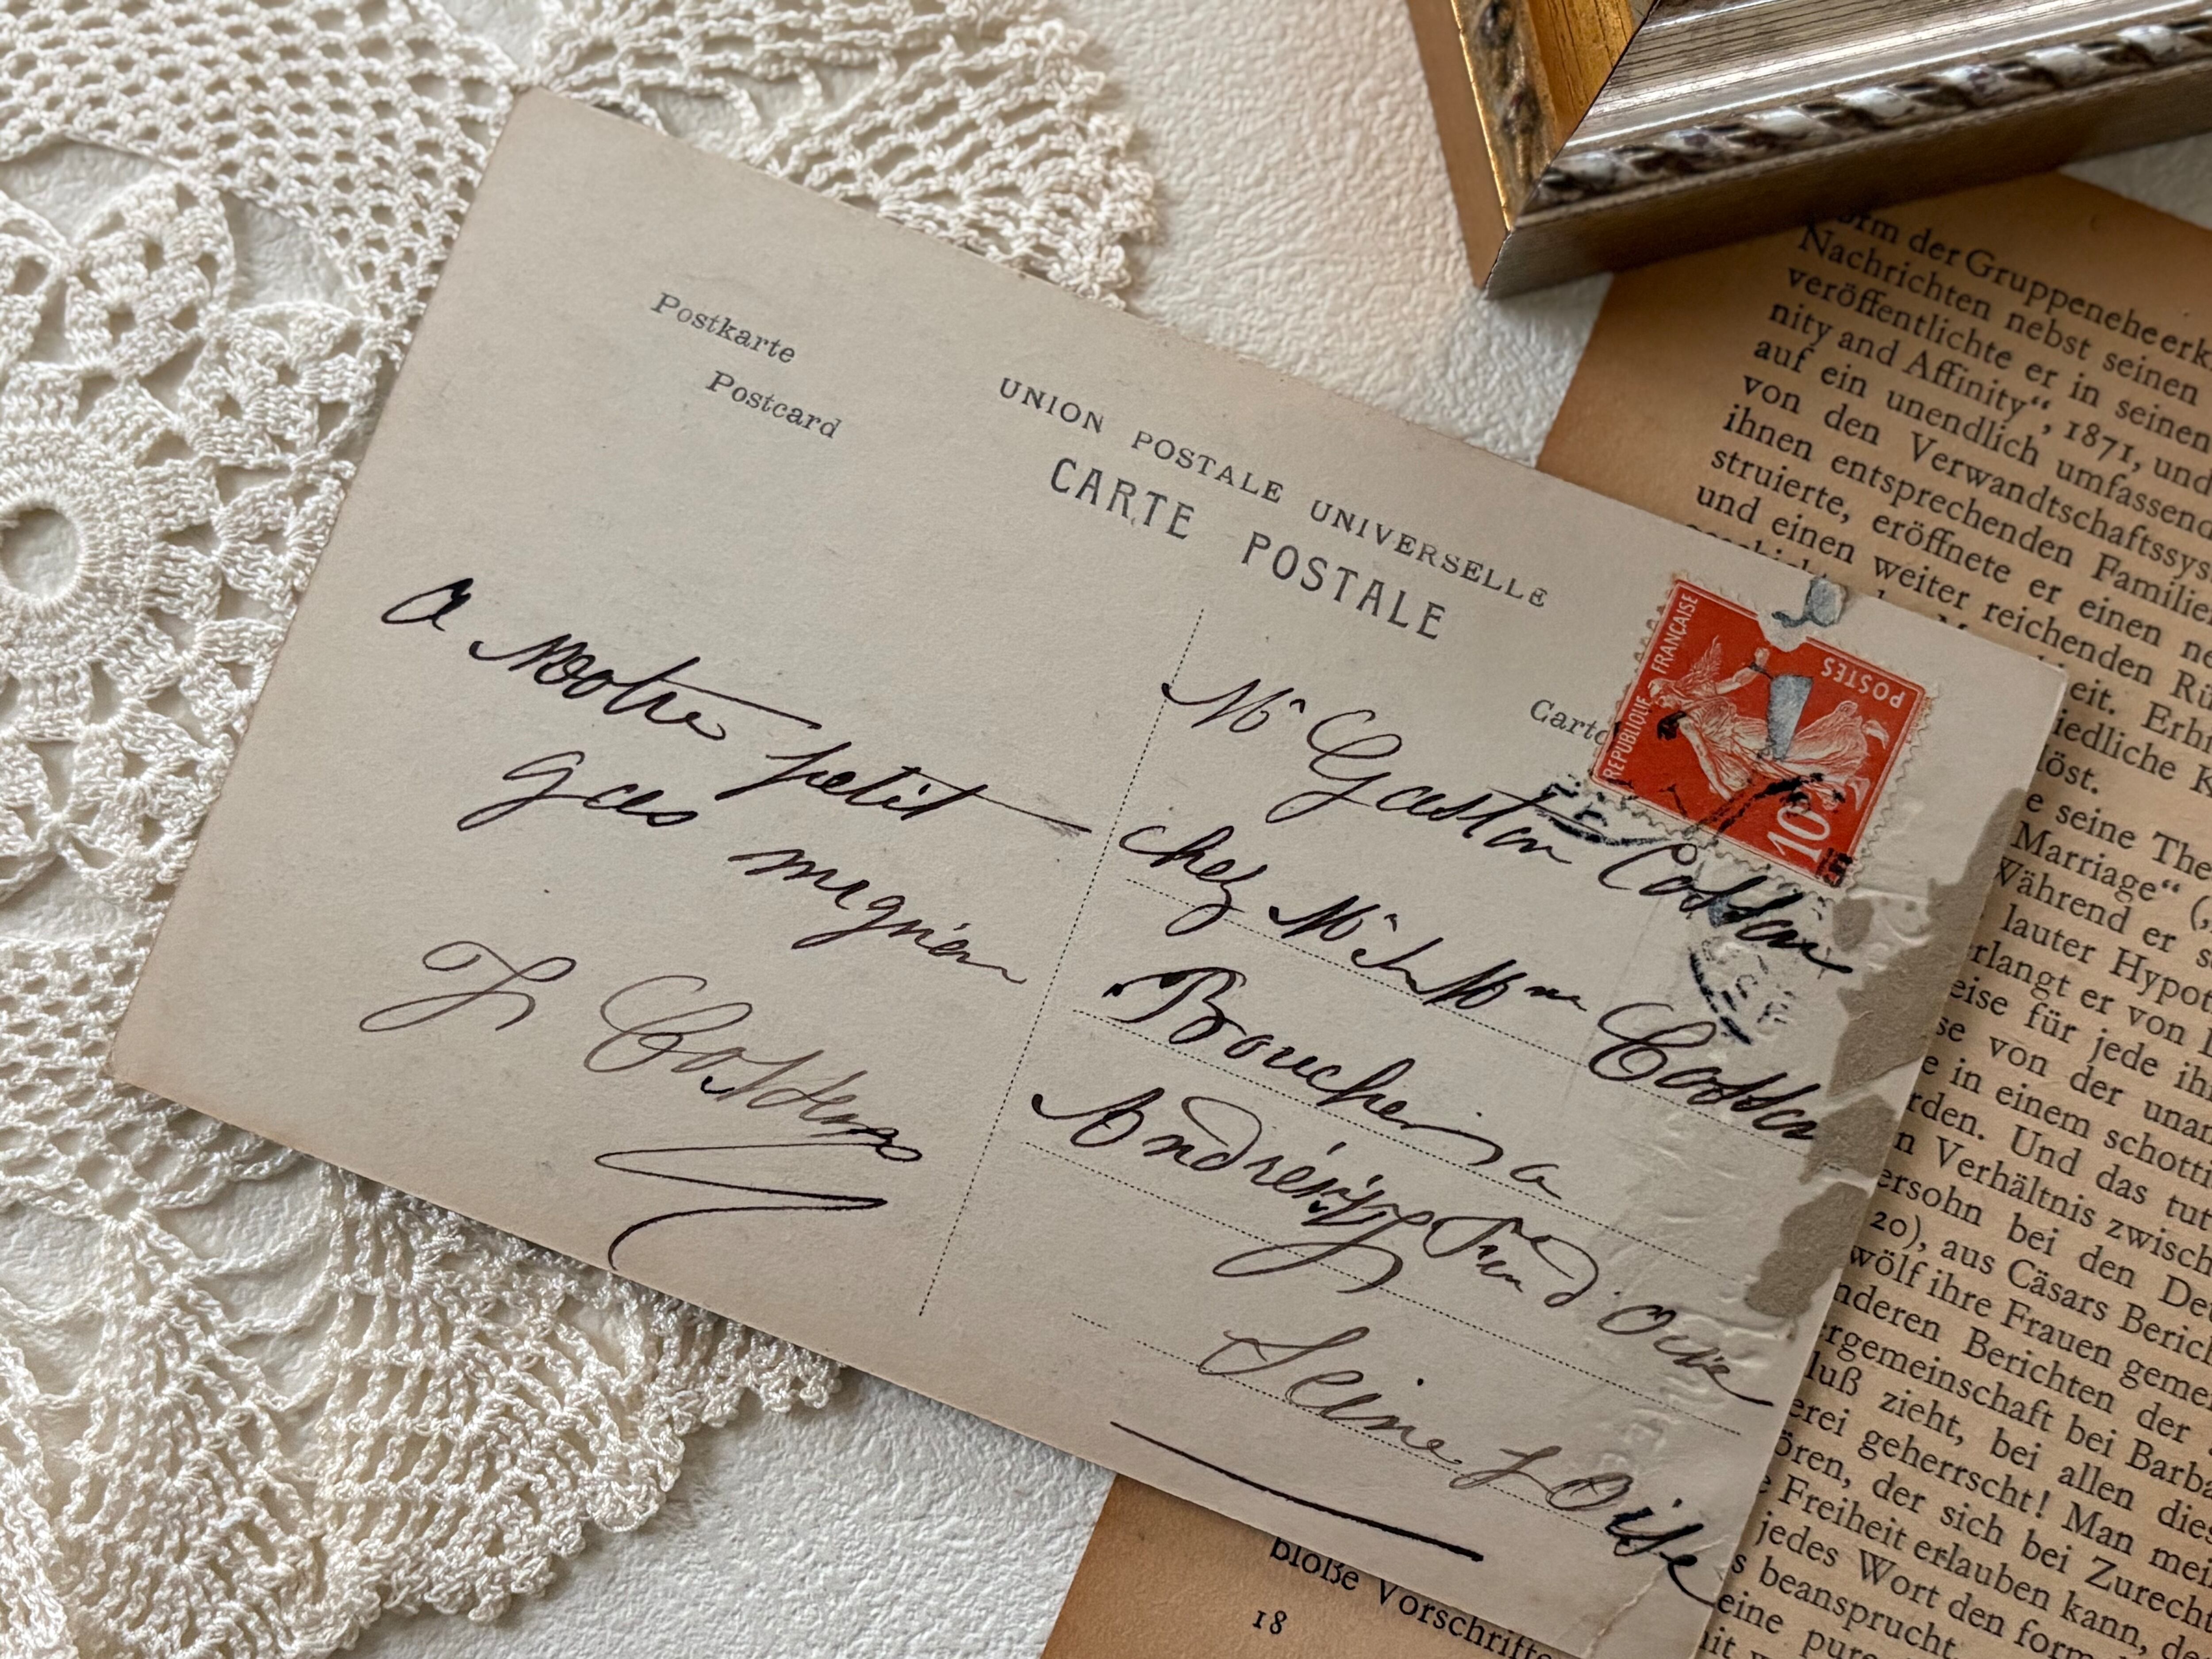 Postkarte
Postcard
UNION POSTALE UNIVERSELLE
CARTE POSTALE
Carto
REPUBLIQUE FRANÇAISE
POSTES
10c
a Notre petit
gas mignon
Mr Gaston Cosson
chez Mr et Mme Cosson
Boucher a
Andrésy
Seine & Oise
orm der Gruppeneheerk
Nachrichten nebst seinen
veröffentlichte er in seinen
nity and Affinity“, 1871, und
auf ein unendlich umfassend
von den Verwandtschaftssys
ihnen entsprechenden Familie
struierte, eröffnete er einen ne
und einen weiter reichenden Rü
eit. Erh
iedliche K
löst.
e seine The
Marriage“ (
Während er s
lauter Hypot
rlangt er von
eise für jede ih
se von der unar
e in einem schotti
rden. Und das tut
n Verhältnis zwisch
ersohn bei den De
20), aus Cäsars Berich
wölf ihre Frauen geme
nderen Berichten der
rgemeinschaft bei Barba
luß zieht, bei allen dies
erei geherrscht! Man mei
ören, der sich bei Zurecht
e Freiheit erlauben kann, de
jedes Wort den form
s beansprucht
eine pure
bloße Vorschrifte
18